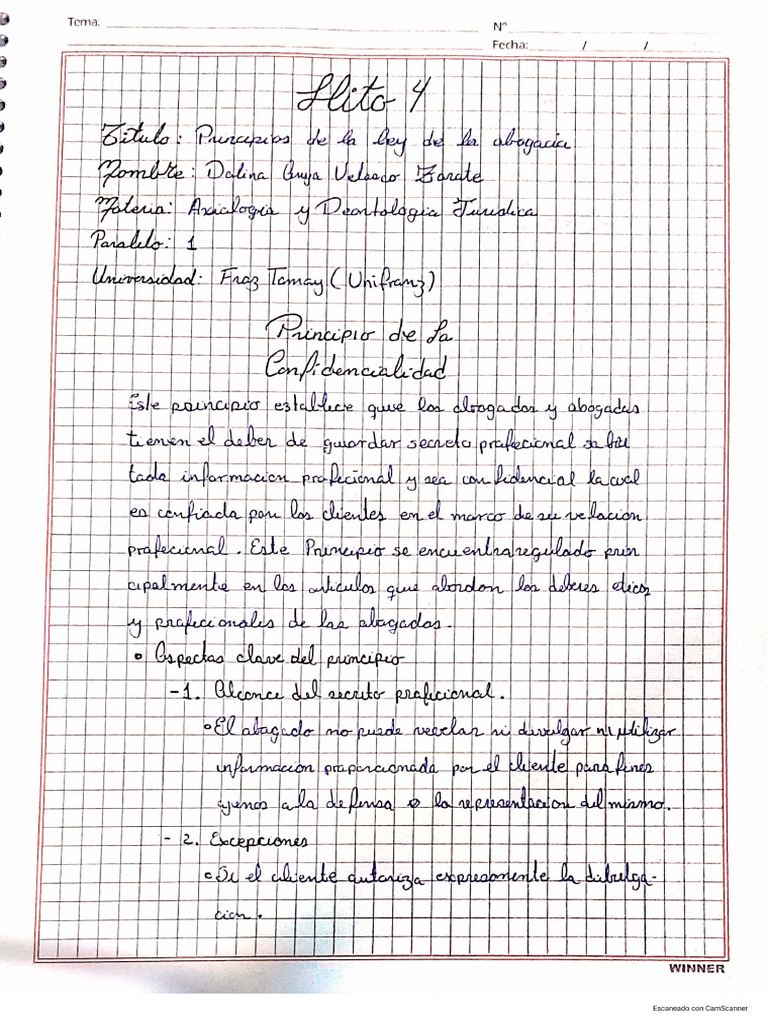 Tema:
N°
Fecha: / /
Hito 4
Título: Principios de la ley de la abogacia
Nombre: Dalina Velasco Zarate
Materia: Axialogia y Deontologia Juridica
Paralelo: 1
Universidad: Fraz Tamay (Unifranz)
Principio de la
Confidencialidad
Este principio establece que los abogados y abogadas
tienen el deber de guardar secreto profecional sobre
toda informacion profecional y sea confidencial la cual
es confiada por los clientes en el marco de su relacion
profecional. Este Principio se encuentra regulado prin
cipalmente en los articulos que abordan los deberes eticos
y profecionales de las abogadas.
• Aspectos clave del principio
- 1. Alcance del secreto proficional.
• El abogado no puede revelar ni divulgar ni utilizar
informacion proporcionada por el cliente para fines
ajenos a la defensa o la representacion del mismo.
- 2. Excepciones
• Si el cliente autoriza expresamente la dibulga-
cion.
WINNER
Escaneado con CamScanner